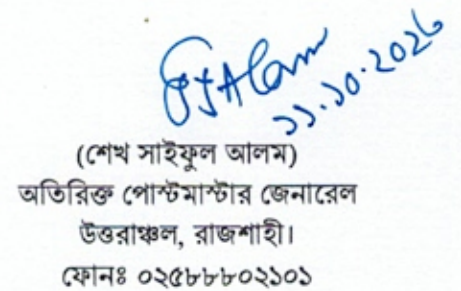 SJAlam
১১.১০.২০২৬
(শেখ সাইফুল আলম)
অতিরিক্ত পোস্টমাস্টার জেনারেল
উত্তরাঞ্চল, রাজশাহী।
ফোনঃ ০২৫৮৮৮০২১০১